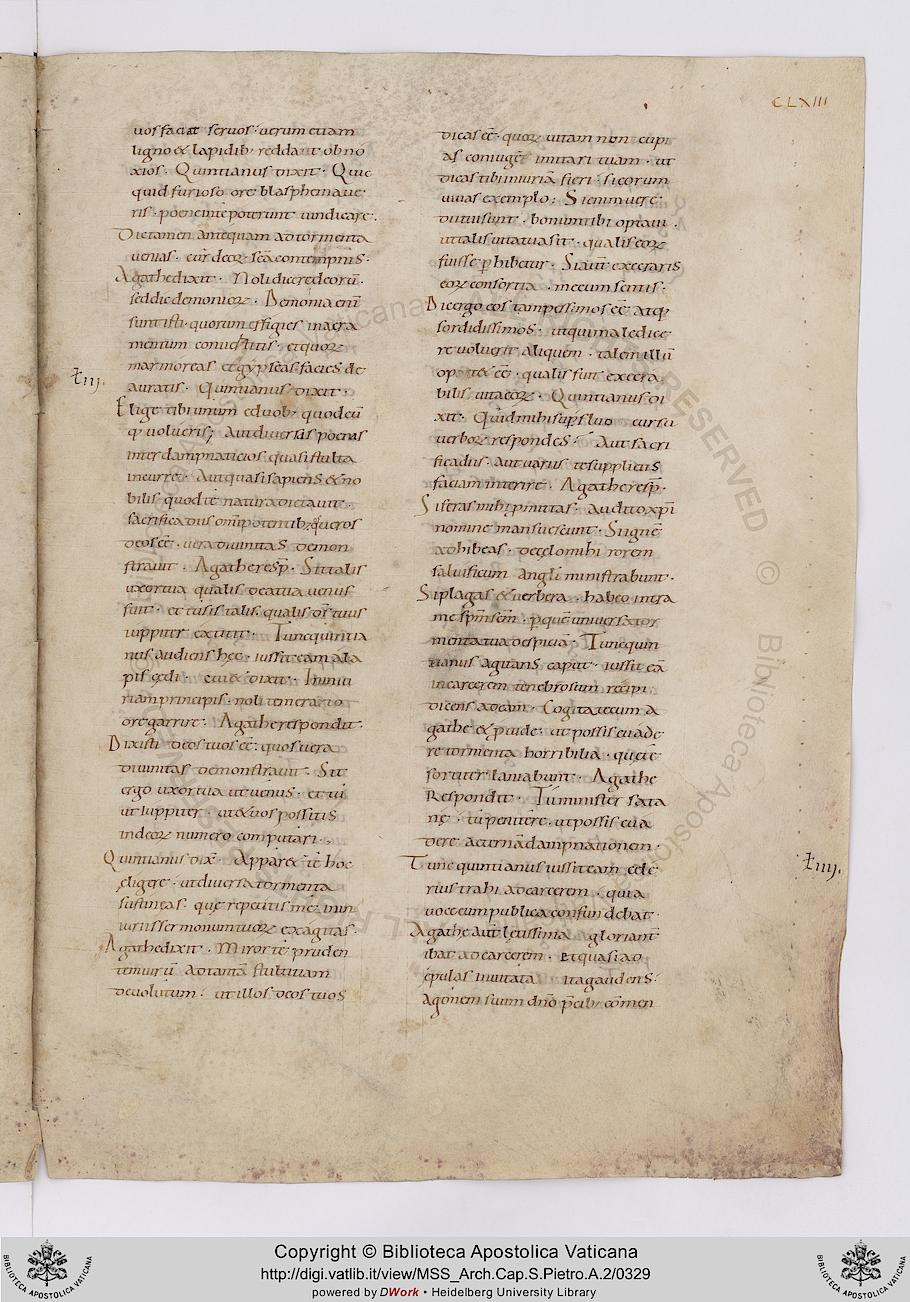 CLXIII
uos faciat seruos. uerum etiam
ligno & lapidib. reddant obno
xios. Quintianus dixit. Quic
quid furioso ore blasphemaue
ris. poene inte poterunt uindicare.
Dic tamen antequam ad tormenta
uenias. cur deor sc̄a contempnis.
Agathe dixit. Noli dicere deorū.
sed dic demonior. Demonia enī
sunt isti. quorum effigies in aera
mentum conuertitis. et quor
marmoreas et gypseas facies de
auratis. Quintianus dixit.
ł iij.
Elige tibi unum e duob; quod cū
q uolueris; Aut diuersis poenas
inter dampnaticios quasi stulta
incurre. Aut quasi sapiens & no
bilis quod te natura dictauit.
sacrifica diis omnipotentib; q ueros
deos eē. uera diuinitas demon
strauit. Agathe resp̄. Sit talis
uxor tua qualis dea tua uenus
fuit. et tu sis talis. qualis ds̄ tuus
iuppiter extitit. Tunc quintia
nus audiens hęc. iussit eam ala
pis cędi. cui & dixit. In iniu
riam principis. noli temerario
ore garrire. Agathe respondit.
Dixisti deos tuos eē. quos uera
diuinitas demonstrauit. Sit
ergo uxor tua ut uenus. et tu
ut iuppiter. ut & uos possitis
in deor numero computari.
Quintianus dix̄. Apparet te hoc
eligere. ut diuersa tormenta
sustineas. quę repetitis me iniu
uriis sermonum tuor exagitas.
Agathe dixit. Miror te pruden
tem uirū. ad tantā stultitiam
deuolutum. ut illos deos tuos
dicas eē. quor uitam non cupi
as coniugē imitari tuam. ut
dicas tibi iniuriā fieri. si eorum
uiuas exemplo; Si enim uere
dii tui sunt. bonum tibi optaui.
ut talis uita tua sit. qualis eor
fuisse phibetur. Si aut̄ execraris
eor consortia. mecum sentis.
Dic ergo eos tam pessimos eē atq;
sordidissimos. ut qui maledice
re uoluerit aliquem. talem illū
optet eē. qualis fuit execra
bilis uita eor. Quintianus di
xit. Quid mihi supfluo cursu
uerbor respondes. Aut sacri
fica diis. aut uariis te suppliciis
faciam interire. Agathe resp̄.
Si feras mihi pmittas. audito xp̄i
nomine mansuescunt. Si ignē
adhibeas. de cęlo mihi rorem
saluificum angli ministrabunt.
Si plagas & uerbera. habeo intra
me sp̄m scm̄. p quē uniuersa tor
menta tua despiciā. Tunc quin
tianus agitans caput. iussit eā
in carcerem tenebrosum recipi.
dicens ad eam. Cogita tecum A
gathe & pęnite. ut possis euade
re tormenta horribilia. quę te
fortiter laniabunt. Agathe
Respondit. Tu minister sata
nę. tu penitere. ut possis eua
dere aeternā dampnationem.
Tunc quintianus iussit eam cele
rius trahi ad carcerem. quia
ł iiij.
uoce eum publica confundebat.
Agathe aut̄ lętissima & gloriant̄
ibat ad carcerem. Et quasi ad
epulas inuitata ita gaudens.
agonem suum dn̄o pcib; cōmen
Copyright © Biblioteca Apostolica Vaticana
http://digi.vatlib.it/view/MSS_Arch.Cap.S.Pietro.A.2/0329
powered by DWork • Heidelberg University Library